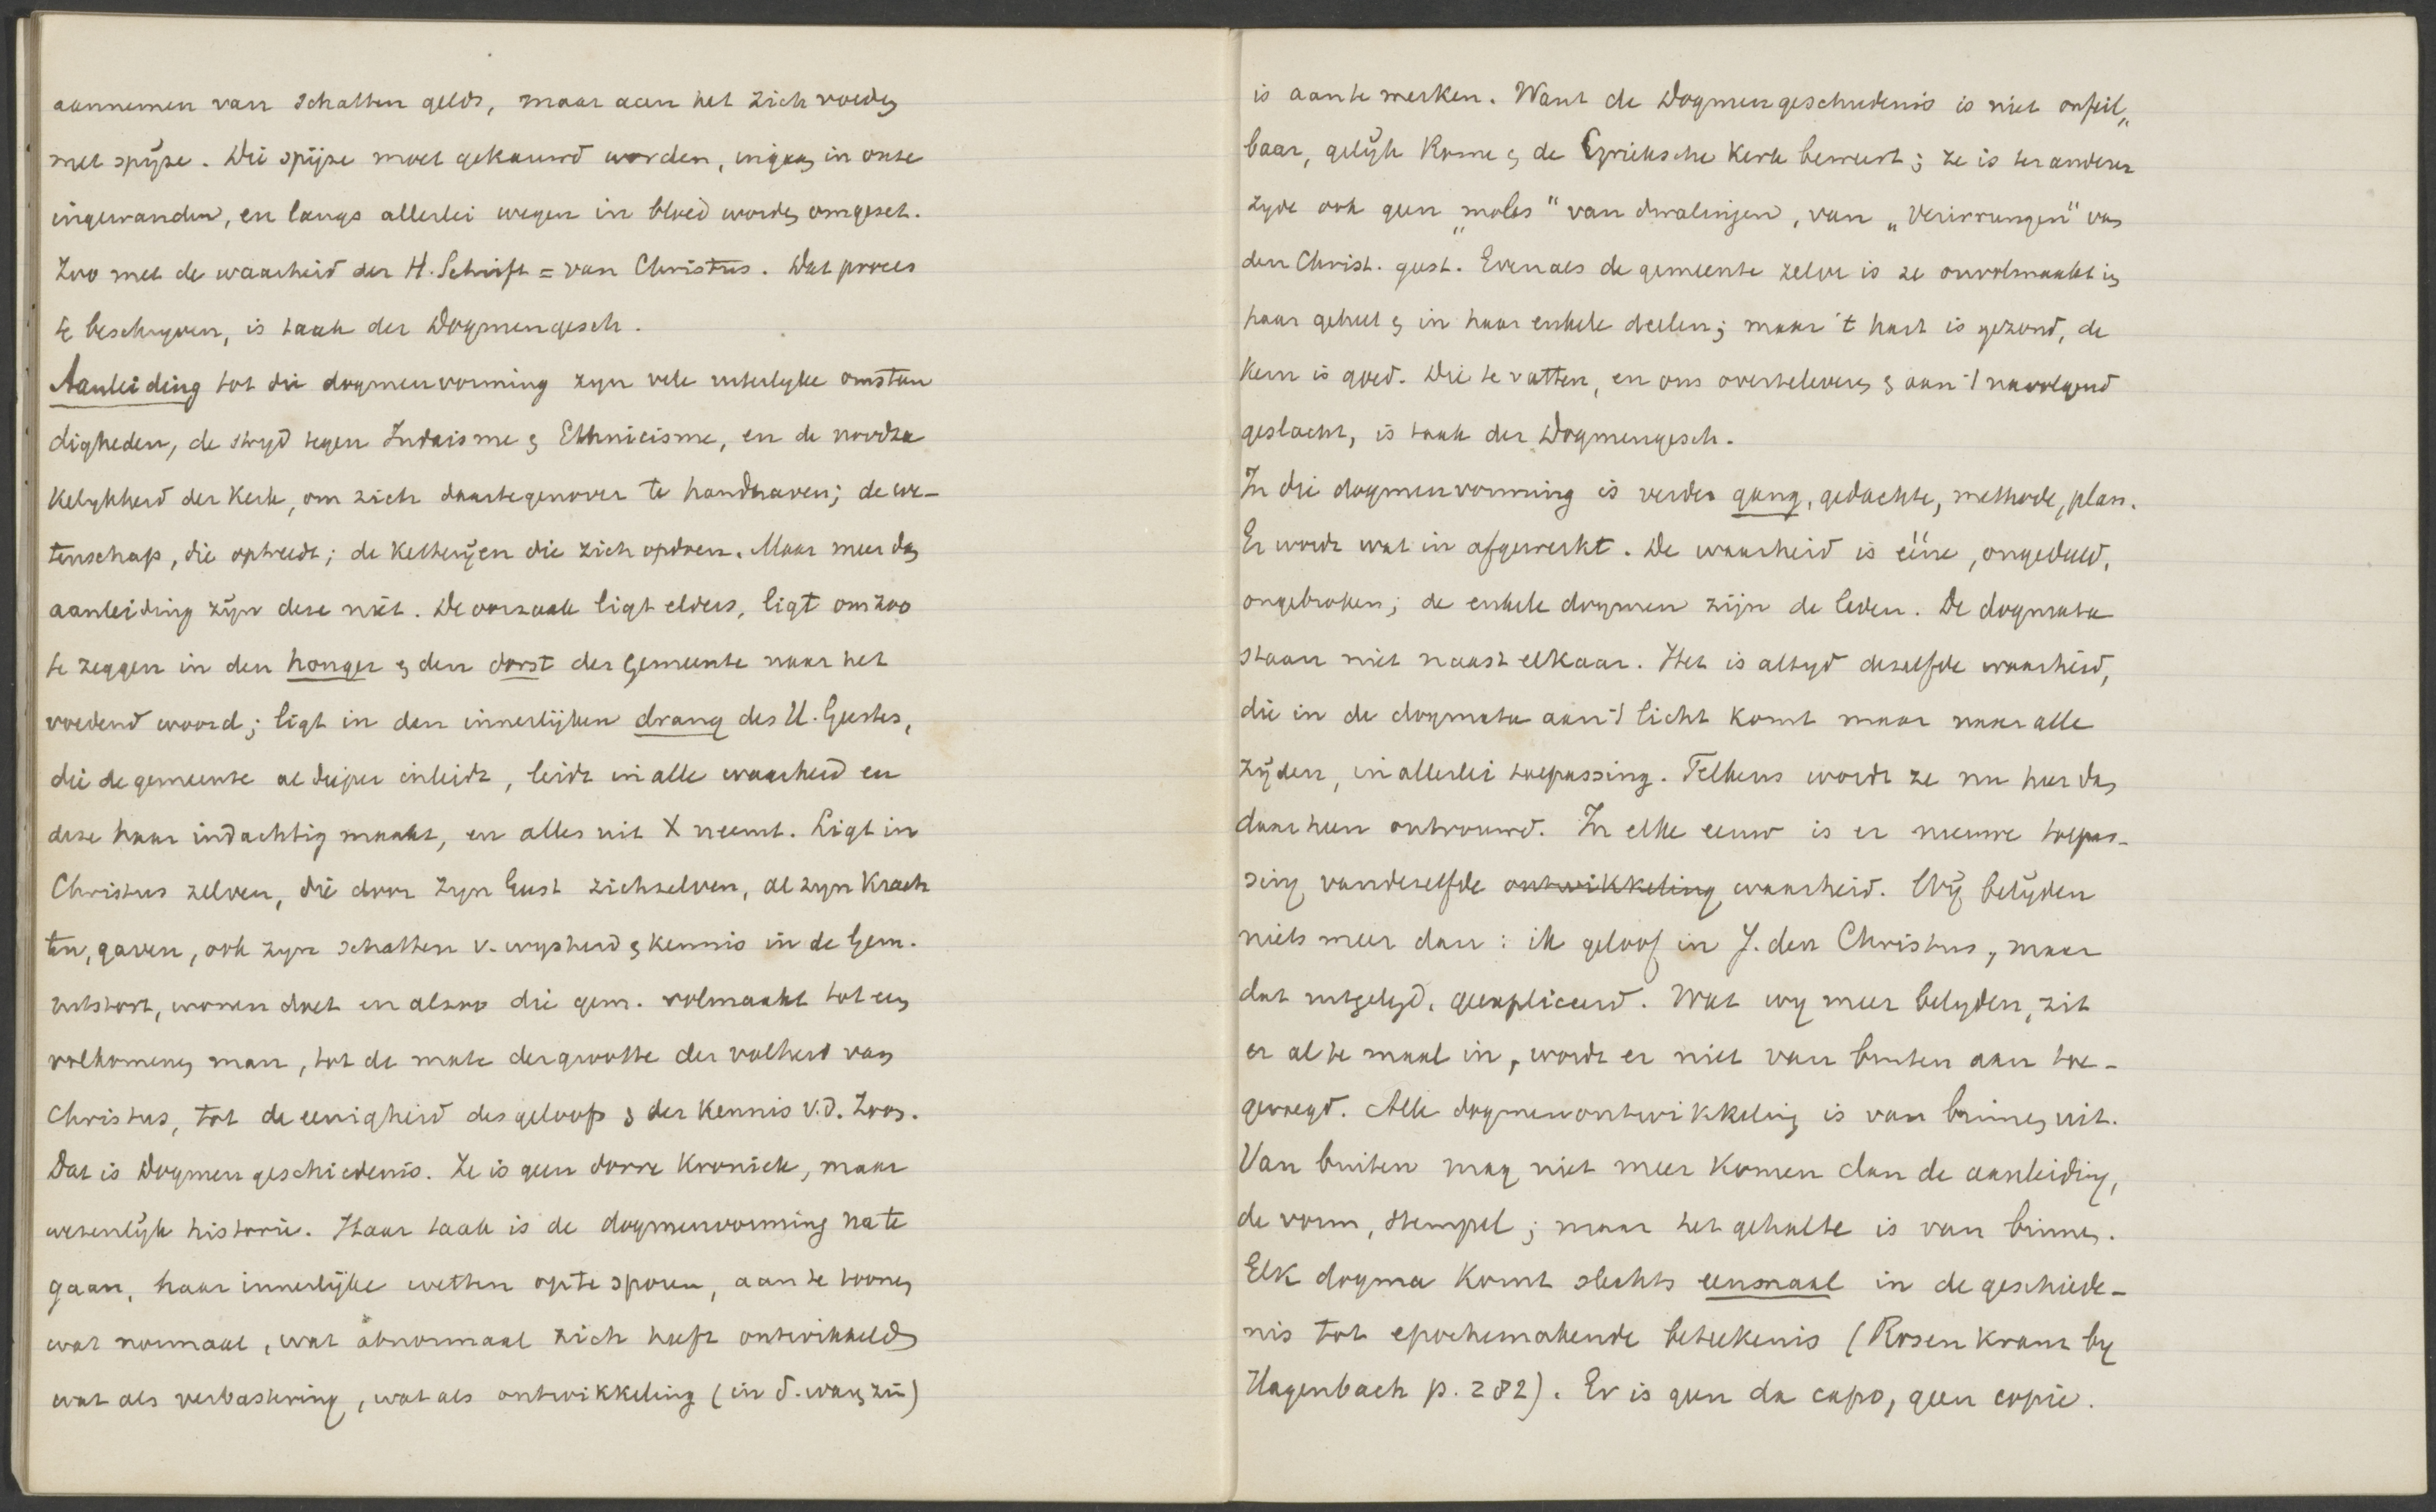 aannemen van schatten gelds, maar aan het zich voeden
met spijze. Die spijze moet gekauwd worden, ingaan in onze
ingewanden, en langs allerlei wegen in bloed worden omgezet.
Zoo met de waarheid der H. Schrift = van Christus. Dat proces
te beschryven, is taak der Dogmengesch.
Aanleiding tot die dogmenvorming zyn vele uiterlyke omstan
digheden, de stryd tegen Judaisme & Ethnicisme, en de noodza
kelykheid der Kerk, om zich daartegenover te handhaven; de we-
tenschap, die optreedt; de ketterijen die zich opdoen. Maar meer dan
aanleiding zijn deze niet. De oorzaak ligt elders, ligt om zoo
te zeggen in den honger & den dorst der Gemeente naar het
voedend woord; ligt in den innerlijken drang des H. Geestes,
die de gemeente al dieper inleidt, leidt in alle waarheid en
deze haar indachtig maakt, en alles uit X neemt. Ligt in
Christus zelven, die door Zyn Geest zichzelven, al zyn Krach
ten, gaven, ook zyn schatten v. wysheid & kennis in de Gem.
uitstort, wonen doet en alzoo die gem. volmaakt tot een
volkomenen man, tot de mate der grootte der volheid van
Christus, tot de eenigheid des geloofs & der Kennis v.d. Zoon.
Dat is Dogmengeschiedenis. Ze is geen dorre Kroniek, maar
wezenlijk historie. Haar taak is de dogmenvorming na te
gaan, haar innerlijke wetten op te sporen, aan te toonen
wat normaal, wat abnormaal zich heeft ontwikkeld,
wat als verbastering, wat als ontwikkeling (in d. waren zin)
is aan te merken. Want de Dogmengeschiedenis is niet onfeil„
baar, gelijk Rome & de Grieksche Kerk beweert; ze is ter anderer
zyde ook geen „moles" van dwalingen, van „Verirrungen" van
den Christ. geest. Evenals de gemeente zelve is ze onvolmaakt in
haar geheel & in haar enkele deelen; maar 't hart is gezond, de
Kern is goed. Die te vatten, en ons overteleveren & aan 't navolgend
geslacht, is taak der Dogmengesch.
In die dogmenvorming is verder gang, gedachte, methode, plan.
Er wordt wat in afgewerkt. De waarheid is ééne, ongedeeld,
ongebroken; de enkele dogmen zijn de leden. De dogmata
staan niet naast elkaar. Het is altyd dezelfde waarheid,
die in de dogmata aan 't licht komt maar naar alle
zijden, in allerlei toepassing. Telkens wordt ze nu hier dan
daarheen ontvouwd. In elke eeuw is er nieuwe toepas-
sing van dezelfde ontwikkeling waarheid. Wij belijden
niets meer dan: ik geloof in J. den Christus, maar
dat uitgelegd, geexpliceerd. Wat wy meer belyden, zit
er al te maal in, wordt er niet van buiten aan toe-
gevoegd. Alle dogmenontwikkeling is van binnen uit.
Van buiten mag niet meer komen dan de aanleiding,
de vorm, stempel; maar het gehalte is van binnen.
Elk dogma komt slechts eenmaal in de geschiede-
nis tot epochemakende beteekenis (Rosenkranz by
Hagenbach p. 282). Er is geen da capo, geen copie.